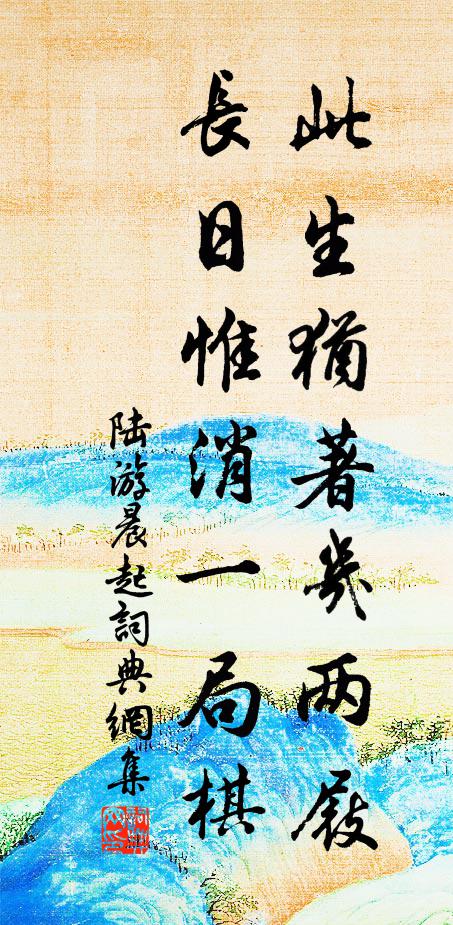 此生猶著幾両屐
長日惟消一局棋
陆游晨起詞典網集